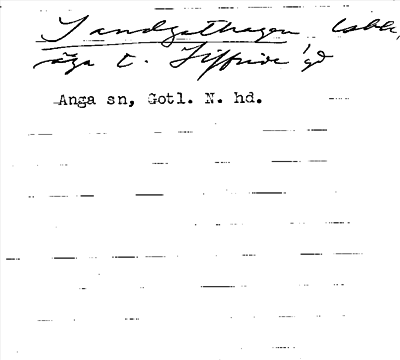 Sandgathagen,
äga t. Siffride gd
Anga sn, Gotl. N. hd.